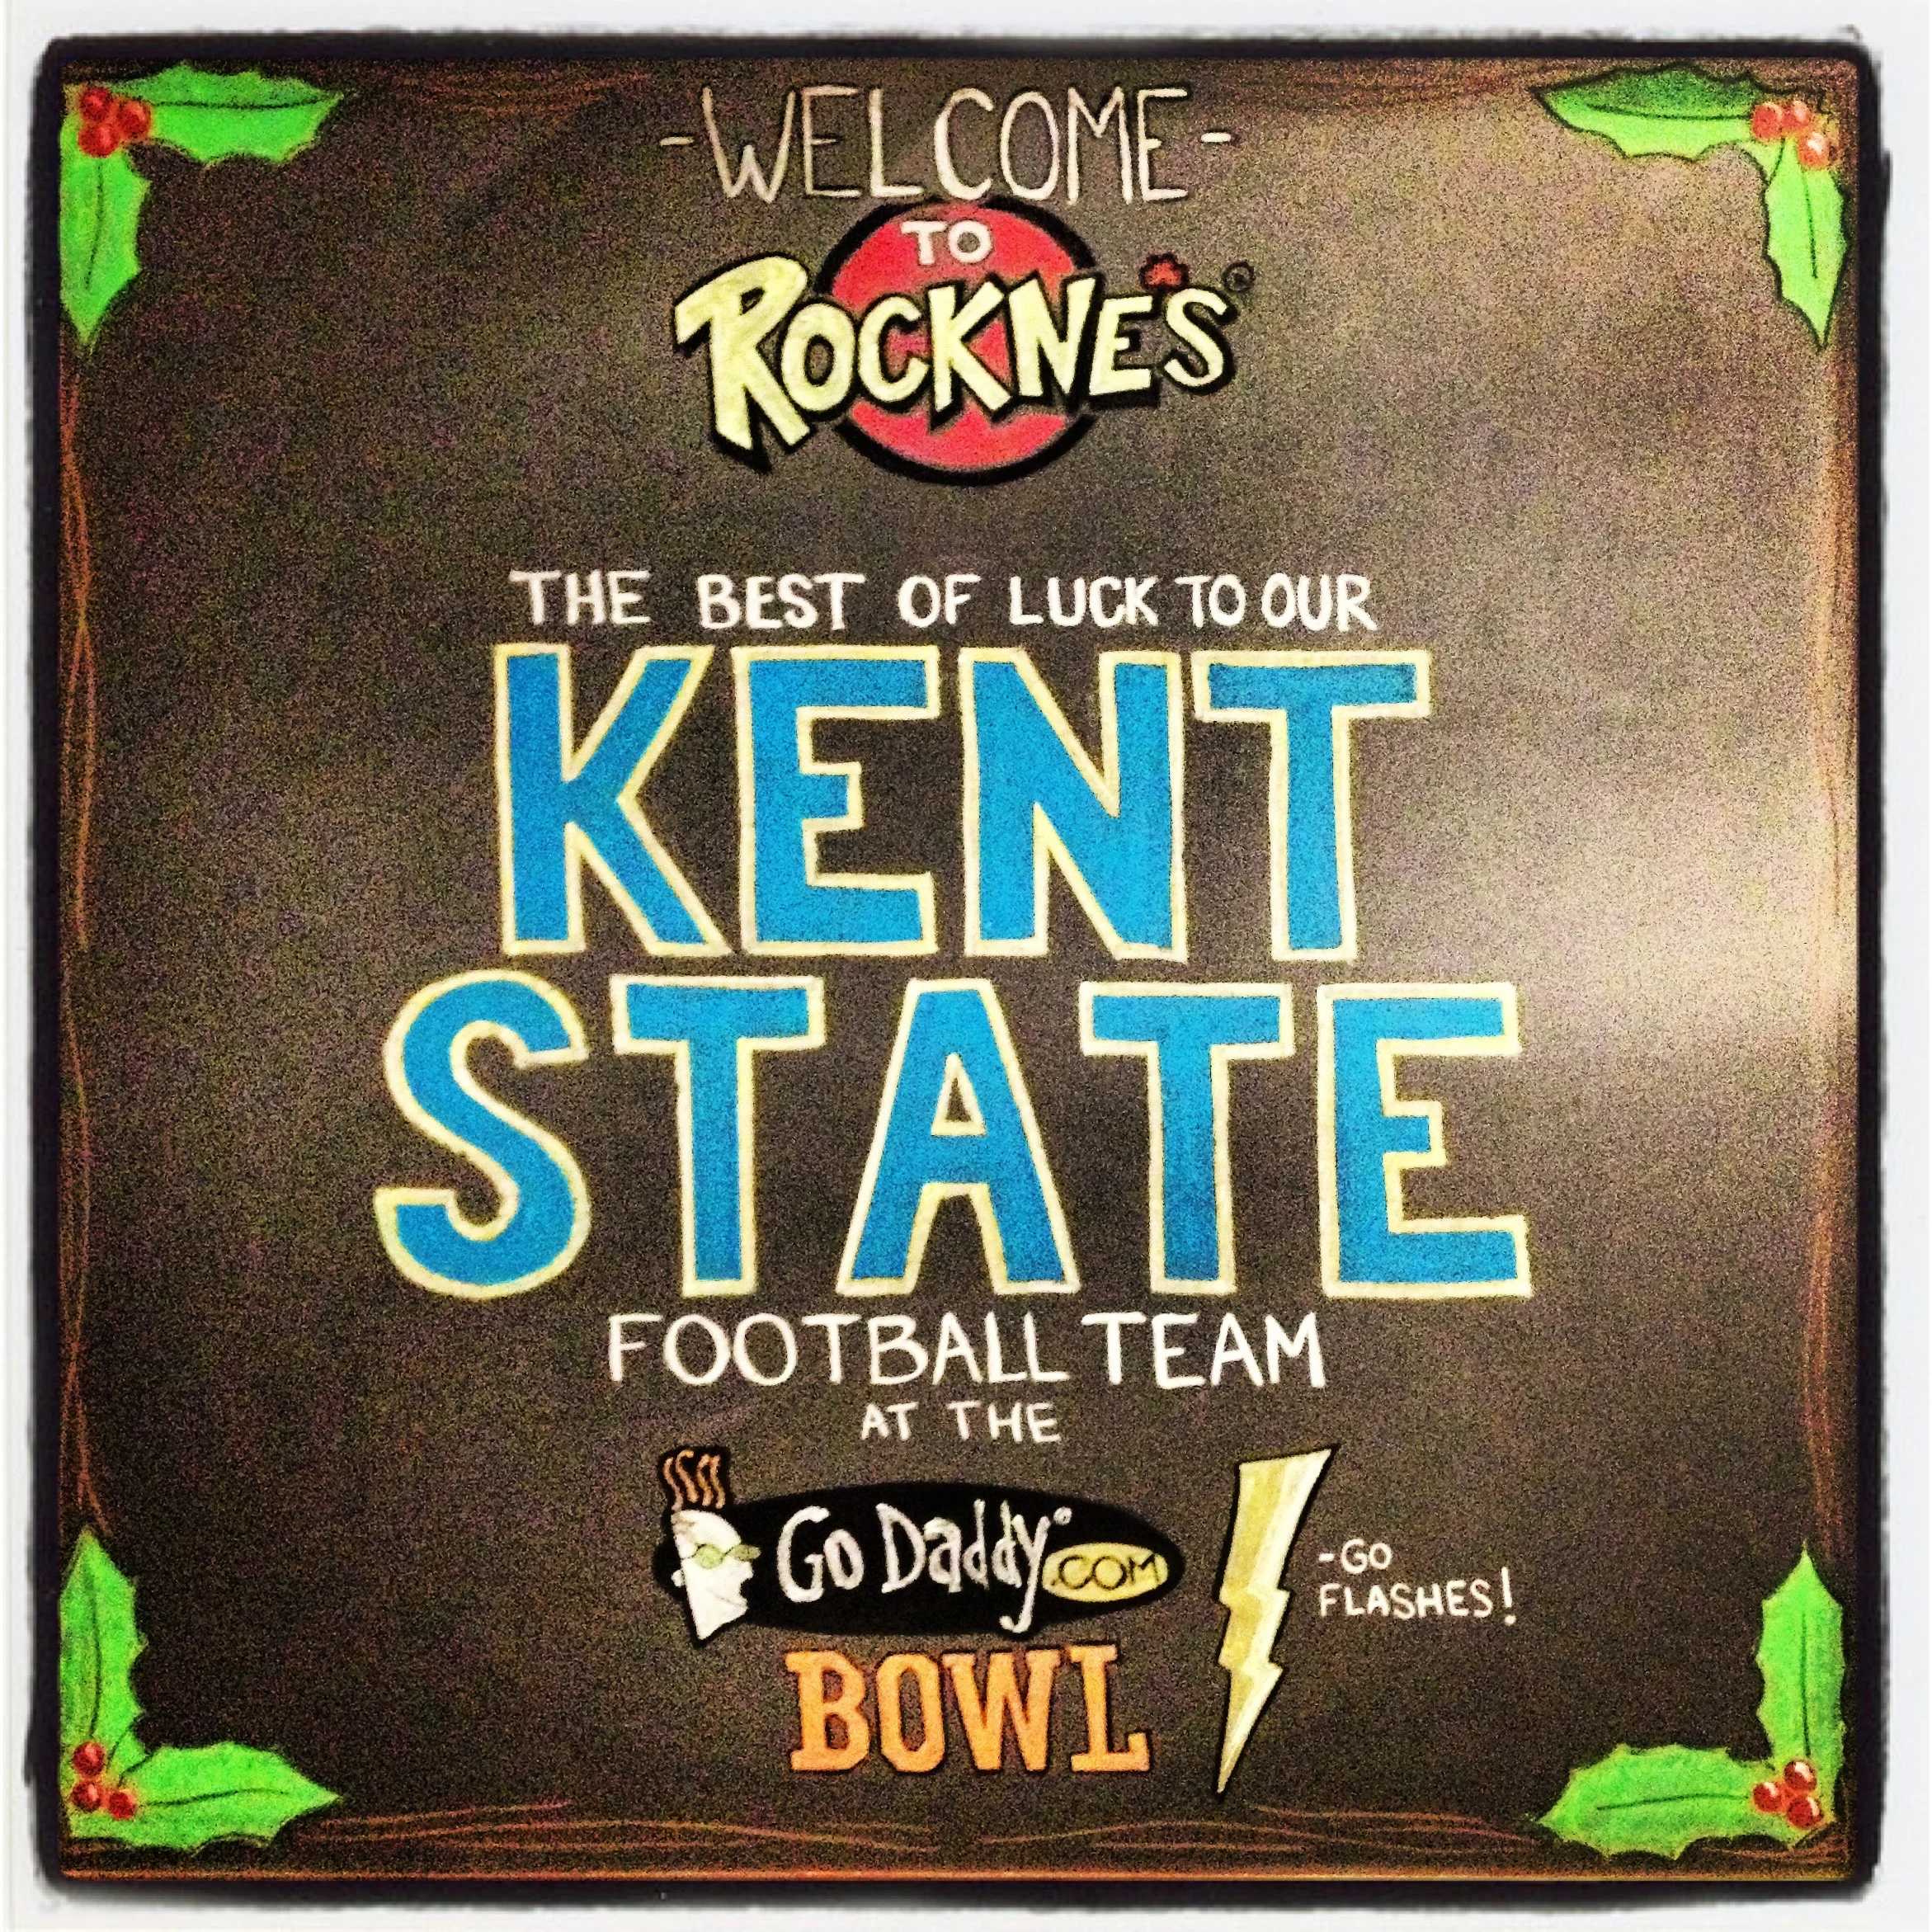 -WELCOME-
TO
ROCKNE'S®
THE BEST OF LUCK TO OUR
KENT
STATE
FOOTBALL TEAM
AT THE
Go Daddy®.COM
BOWL
-GO
FLASHES!